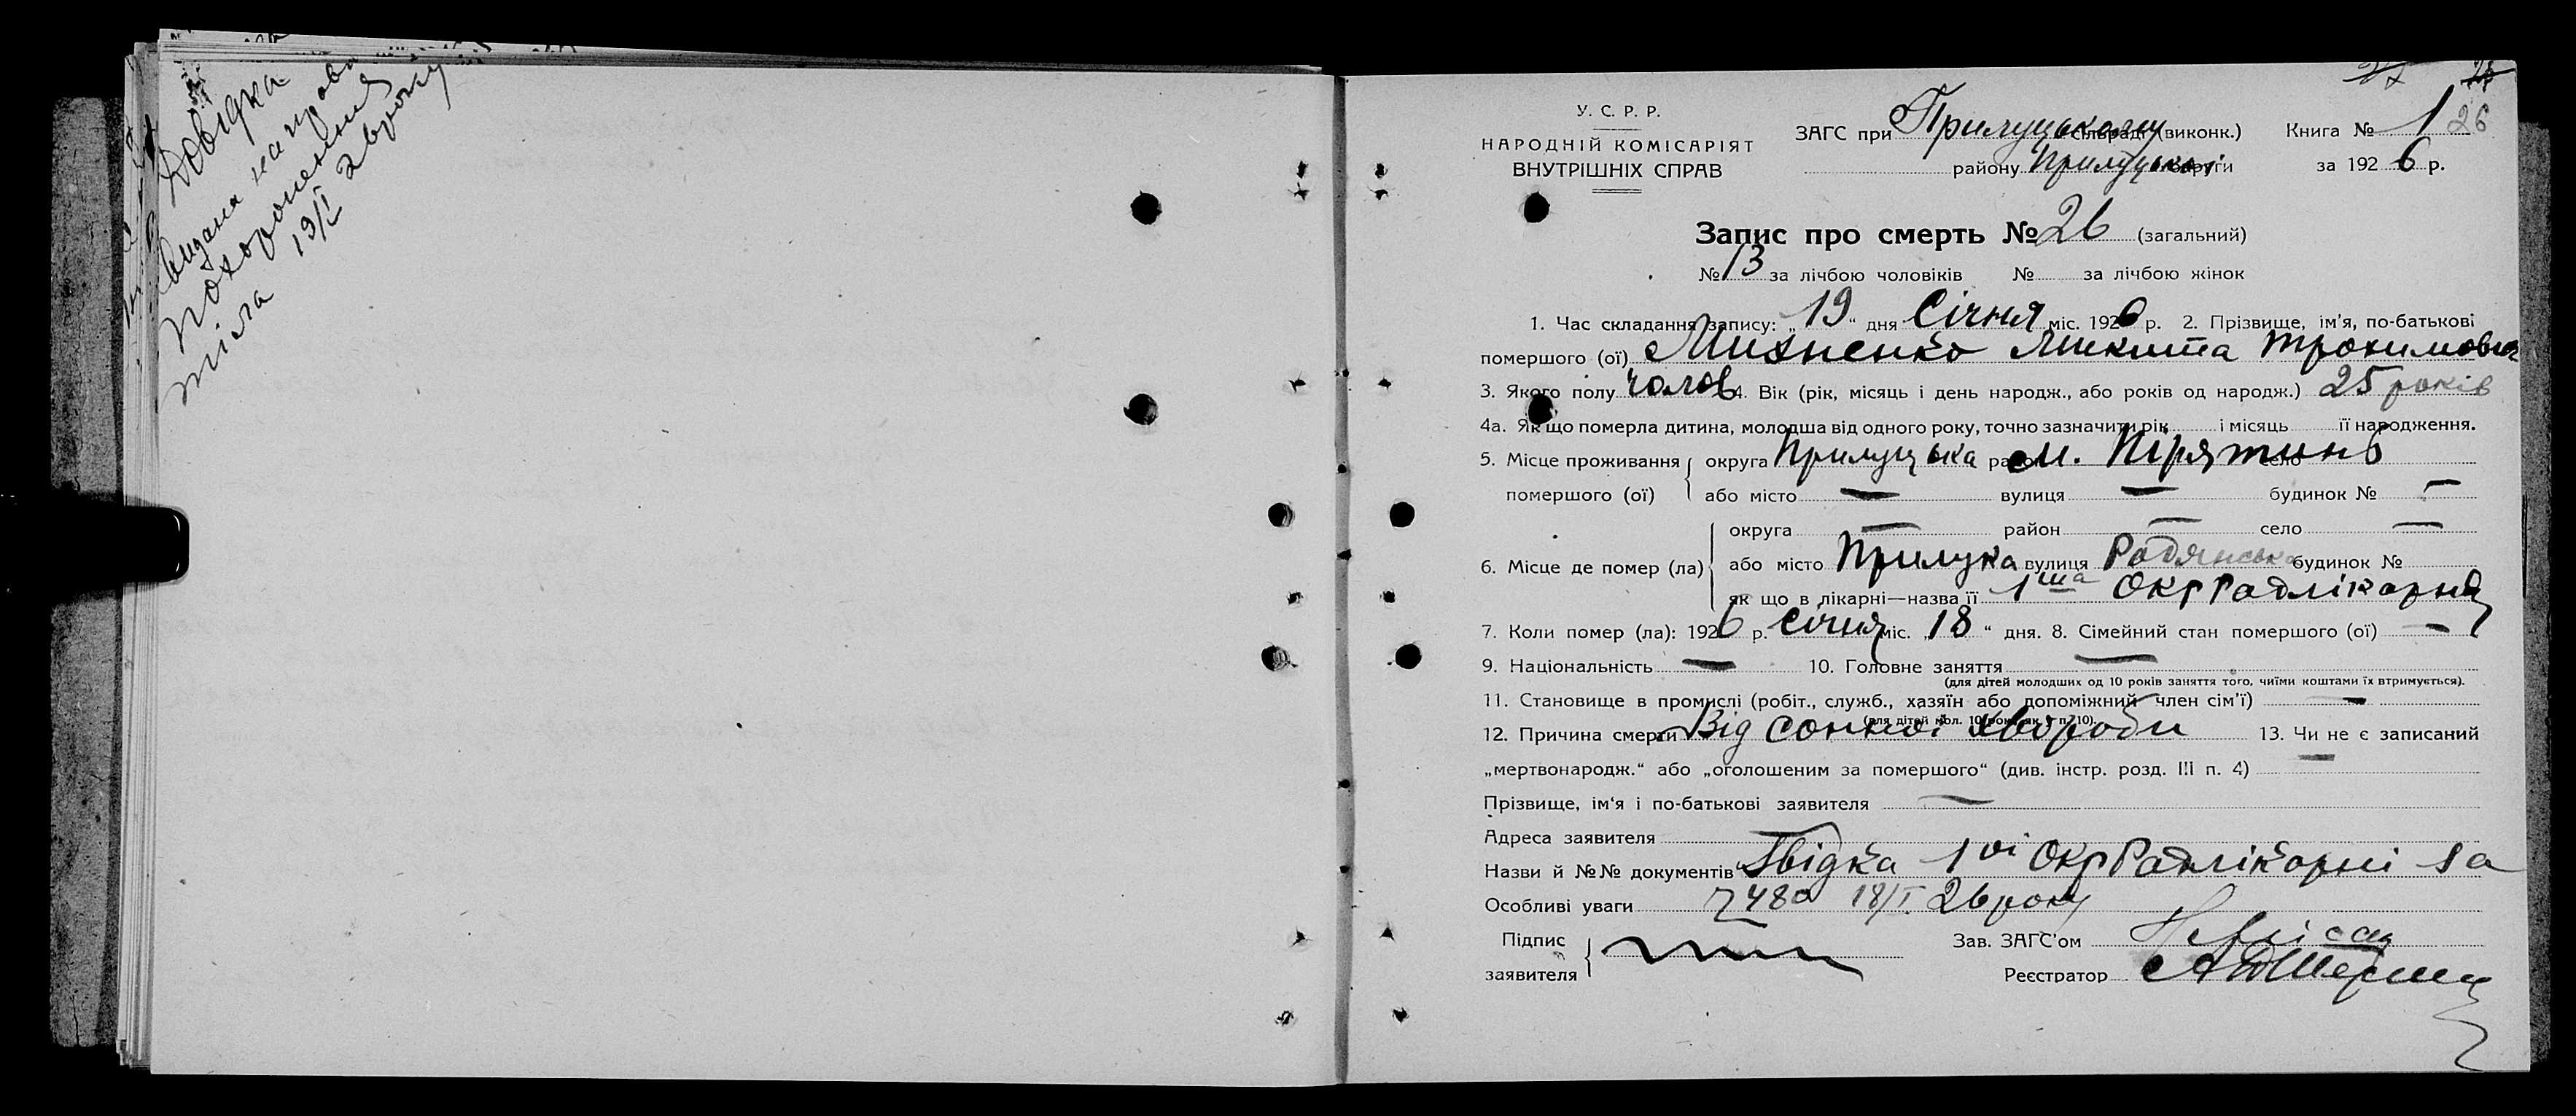 Довідка
видана на право
похоронення
тіла 19/I 26 року
26
У. С. Р. Р.
НАРОДНІЙ КОМІСАРІЯТ
ВНУТРІШНІХ СПРАВ
ЗАГС при Прилуцькому сільраді (виконк.) Книга № 1
району Прилуцької округи за 1926 р.
Запис про смерть № 26 (загальний)
№ 13 за лічбою чоловіків № за лічбою жінок
1. Час складання запису: „19“ дня Січня міс. 1926 р. 2. Прізвище, ім'я, по-батькові
помершого (ої) Михненко Микита Трохимович
3. Якого полу чолов 4. Вік (рік, місяць і день народж., або років од народж.) 25 років
4а. Як що померла дитина, молодша від одного року, точно зазначити рік і місяць її народження.
5. Місце проживання округа Прилуцька район м. Пірятинь село
помершого (ої) або місто — вулиця — будинок № —
округа — район — село —
6. Місце де помер (ла) або місто Прилука вулиця Радянська будинок №
як що в лікарні—назва її 1ша ОкрРадлікарня
7. Коли помер (ла): 1926 р. Січня міс. „18“ дня. 8. Сімейний стан помершого (ої) —
9. Національність — 10. Головне заняття —
(для дітей молодших од 10 років заняття того, чиїми коштами їх втримується).
11. Становище в промислі (робіт., служб., хазяїн або допоміжний член сім'ї) —
(для дітей мол. 10 рок. як в п. 10).
12. Причина смерти Від сонної хвороби 13. Чи не є записаний
„мертвонародж.“ або „оголошеним за помершого“ (див. інстр. розд. III п. 4) —
Прізвище, ім'я і по-батькові заявителя —
Адреса заявителя
Назви й №№ документів Звідка 1ої ОкрРадлікарні за
Особливі уваги 7480 18/I 26 року
Підпис
заявителя
Зав. ЗАГС'ом
Реєстратор